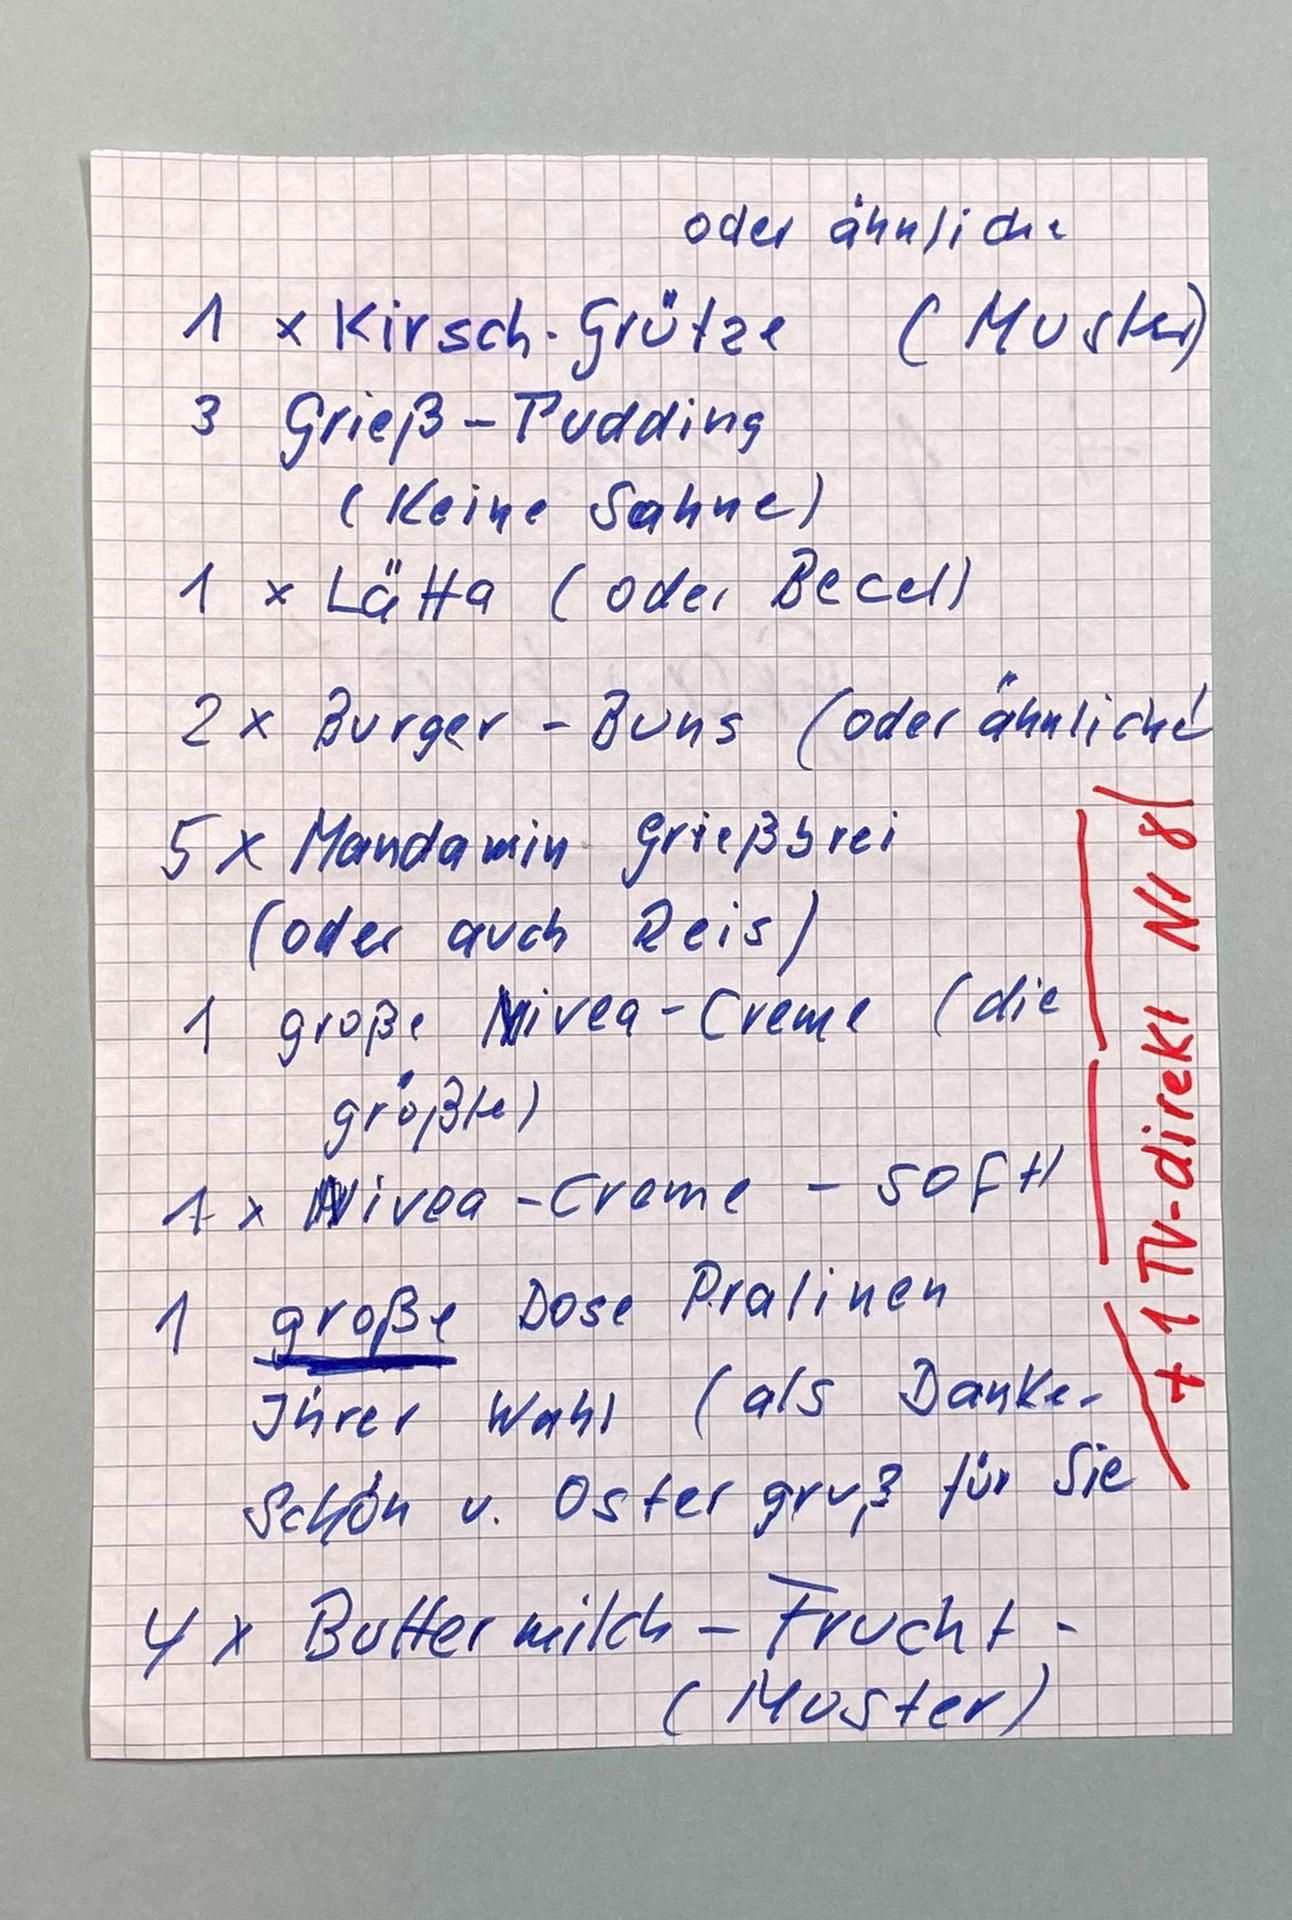 oder ähnliche
1 x Kirsch-Grütze (Muster)
3 Grieß-Pudding
(Keine Sahne)
1 x Lätta (oder Becel)
2x Burger-Buns (oder ähnliche
5x Mandamin Grießbrei
(oder auch Reis)
1 große Nivea-Creme (die
größte)
1x Nivea-Creme - soft
1 große Dose Pralinen
Ihrer Wahl (als Danke-
Schön u. Ostergruß für Sie
4x Buttermilch-Frucht-
(Muster)
+ 1 TV-direkt Nr 8